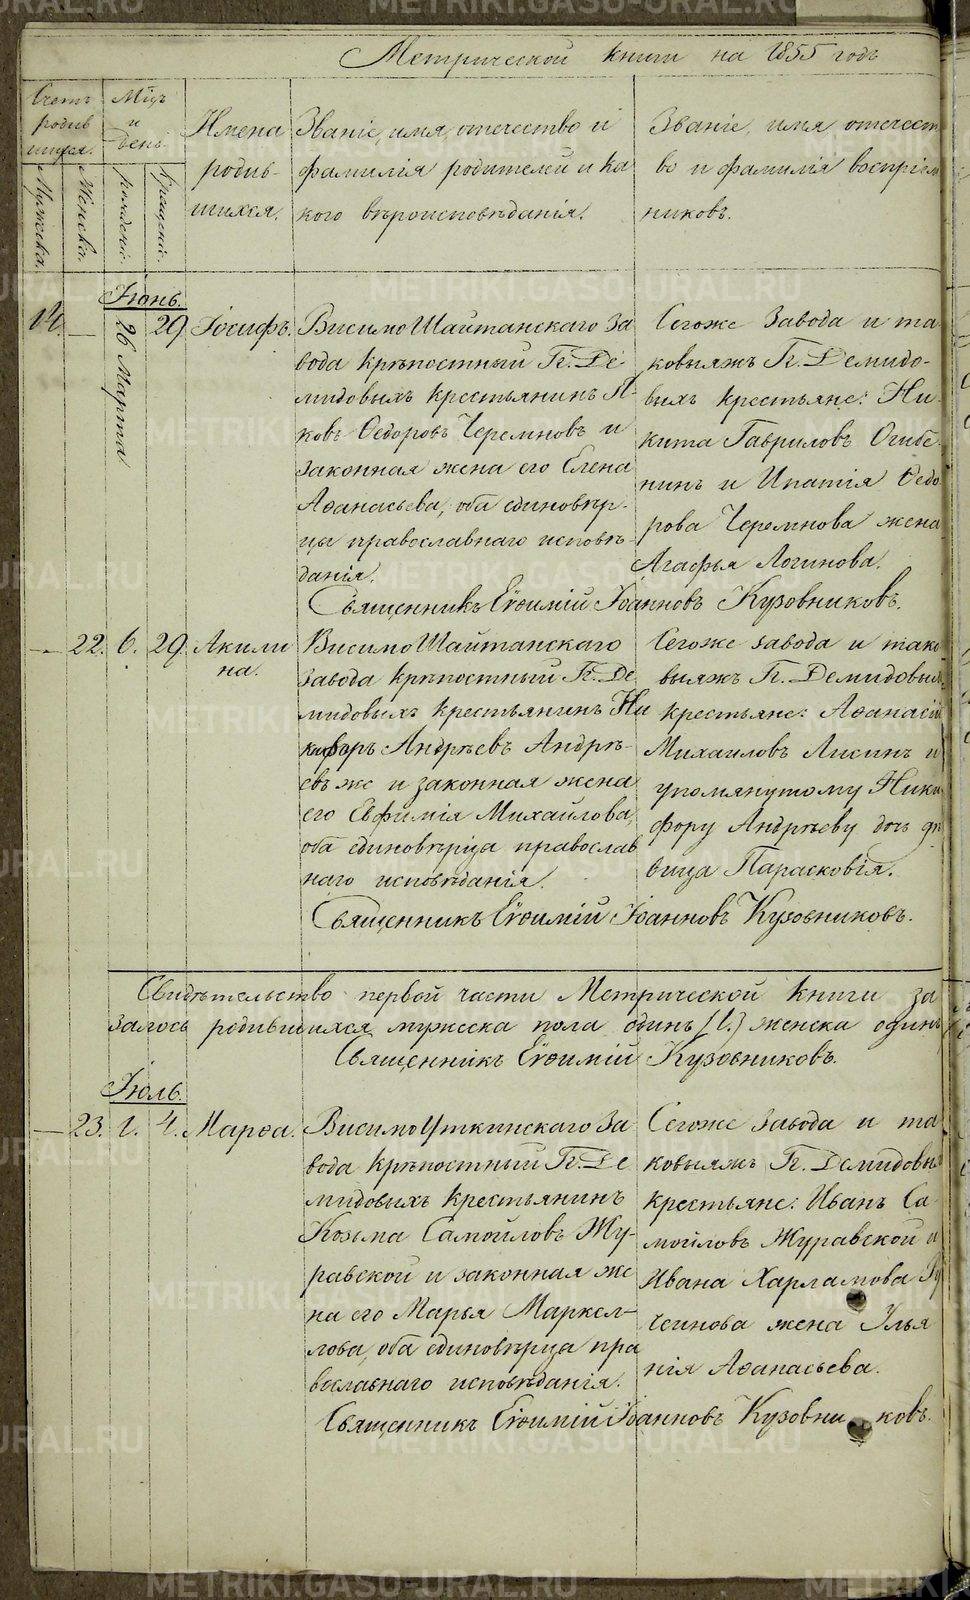 Метрической книги на 1855 годъ
Счетъ родив шихся.
Мужеска.
Женска.
Мѣцъ и день
рожденiя.
крещенiя.
Имена родив- шихся.
Званiе, имя, отечество и
фамилiя родителей и ка
кого вѣроисповѣданiя.
Званiе, имя отечест
во и фамилiя воспрiем
никовъ.
Iюнь.
14. — 26 Марта 29 Iосифъ.
ВисимоШайтанскаго За
вода крѣпостный Гг. Де
мидовыхъ крестьянинъ Я-
ковъ Ѳедоровъ Черемновъ и
законная жена его Елена
Аѳанасьева, оба единовѣр-
цы православнаго исповѣ-
данiя.
Сегоже Завода и та
ковыяжъ Гг. Демидо-
выхъ крестьяне: Ни-
кита Гавриловъ Огибе-
нинъ и Ипатiя Ѳедо
рова Черемнова жена
Агафья Логинова.
Священникъ Евѳимiй Iоанновъ Кузовниковъ.
— 22. 6. 29. Акили
на.
ВисимоШайтанскаго
завода крѣпостный Гг. Де
мидовыхъ крестьянинъ Ни
кифоръ Андрѣевъ Андрѣ-
евъ же и законная жена
его Евфимiя Михайлова,
оба единовѣрца православ
наго исповѣданiя.
Сегоже завода и тако
выяжъ Гг. Демидовых
крестьяне: Аѳанасiй
Михаиловъ Лисинъ и
упомянутому Ники
фору Андрѣеву дочь дѣ
вица Парасковiя.
Священникъ Евѳимiй Iоанновъ Кузовниковъ.
Свидѣтельство первой части Метрической книги за
залось родившихся мужеска пола одинъ (1.) женска одинъ
Священникъ Евѳимiй Кузовниковъ.
Iюль.
— 23. 1. 4. Марѳа.
ВисимоУткинскаго За
вода крѣпостный Гг. Де
мидовыхъ крестьянинъ
Козьма Самойловъ Жу-
равской и законная же
на его Марья Маркел-
лова, оба единовѣрца пра
вославнаго исповѣданiя.
Сегоже завода и та
ковыяжъ Гг. Демидовых
крестьяне: Иванъ Са
мойловъ Журавской и
Ивана Харламова
жена Улья
нiя Аѳанасьева.
Священникъ Евѳимiй Iоанновъ Кузовниковъ.
METRIKI.GASO-URAL.RU